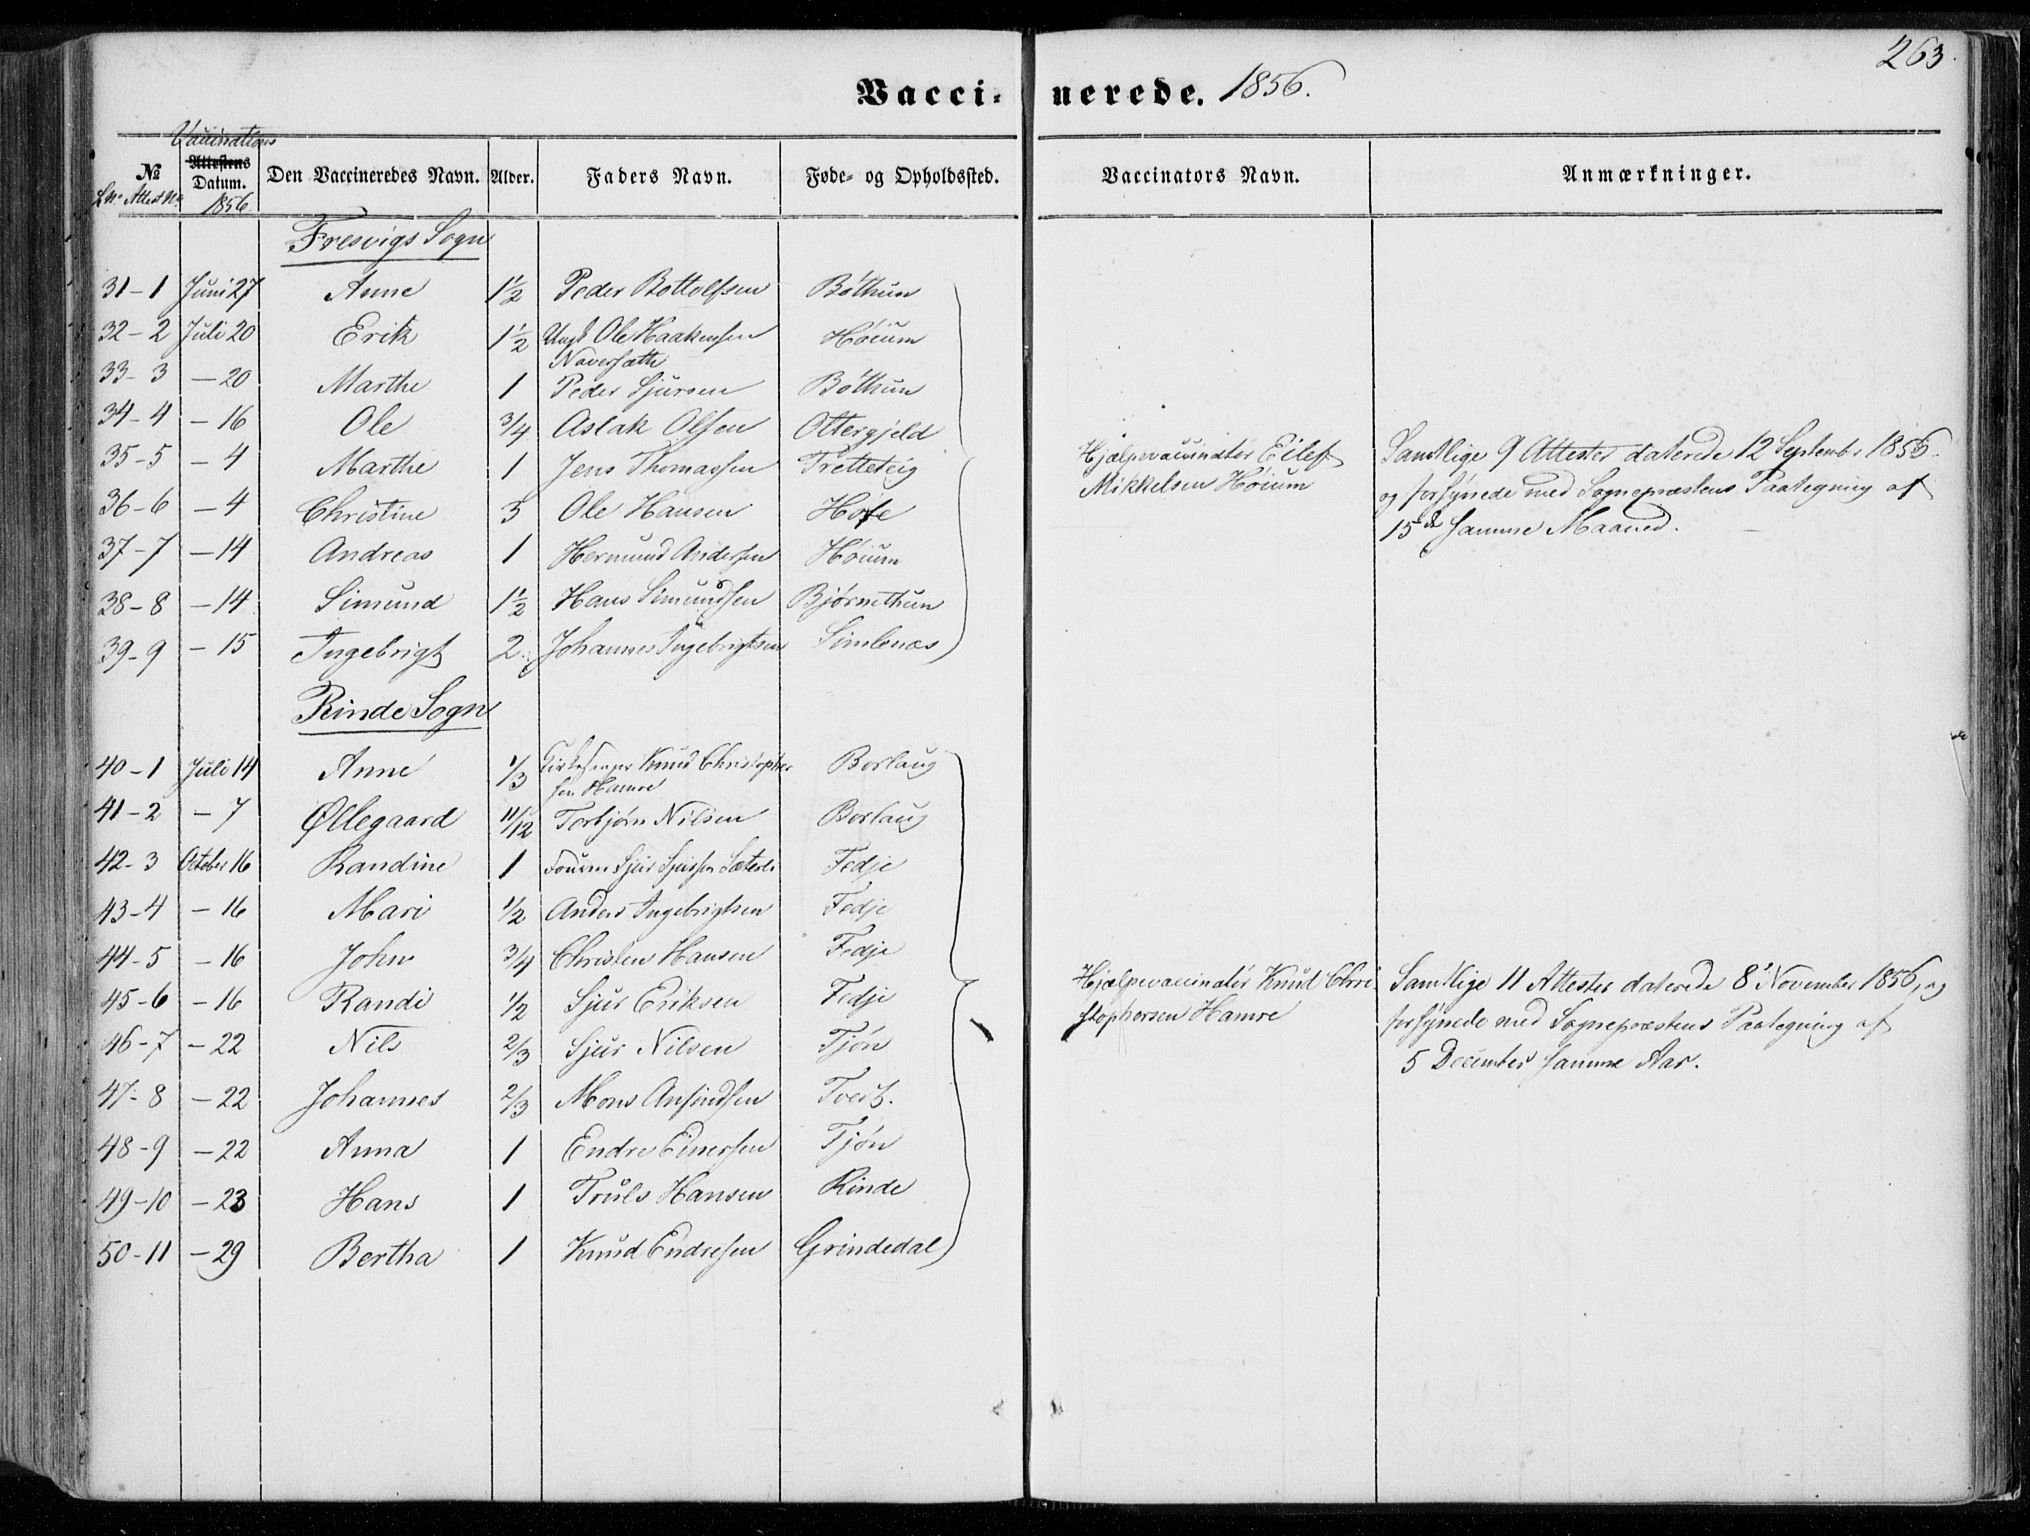 263.
Vacci- nerede. 1856.
Vaccinations
№ Attestens Datum. Den Vaccineredes Navn. Alder. Faders Navn. Føde- og Opholdssted. Vaccinators Navn. Anmærkninger.
L.No. Attest No. 1856
Fresvigs Sogn
31-1 Juni 27 Anne 1½ Peder Bottolfsen Bøthun
32-2 Juli 20 Erik 1½ Ungk Ole Haakensen Høium
Naversætte
33-3 - 20 Marthe 1 Peder Sjursen Bøthun
34-4 - 16 Ole 3/4 Aslak Olsen Ottergjeld
35-5 - 4 Marthe 1 Jens Thomassen Tretteteig
36-6 - 4 Christine 3 Ole Hansen Høfe
37-7 - 14 Andreas 1 Hermund Andersen Høium
38-8 - 14 Simund 1½ Hans Simundsen Bjørnethun
39-9 - 15 Ingebrigt 2 Johannes Ingebrigtsen Simlenæs
Hjælpevaccinatør Eilef
Mikkelsen Høium
Samtlige 9 Attester daterede 12 Septembr 1856.
og forsynede med Sognepræstens Paategning af
15de samme Maaned.
Rinde Sogn
40-1 Juli 14 Anne 1/3 Kirkesanger Knud Christopher Borlaug
sen Hamre
41-2 - 7 Øllegaard 11/12 Torbjørn Nilsen Borlaug
42-3 October 16 Randine 1 Sjur Sjursen Fedje
43-4 - 16 Mari 1/2 Anders Ingebrigtsen Fedje
44-5 - 16 John 3/4 Christen Hansen Fedje
45-6 - 16 Randi 1/2 Sjur Eriksen Fedje
46-7 - 22 Nils 2/3 Sjur Nilsen Tjøn
47-8 - 22 Johannes 2/3 Mons Ansindsen Tvedt.
48-9 - 22 Anna 1 Endre Einersen Tjøn
49-10 - 23 Hans 1 Truls Hansen Rinde
50-11 - 29 Bertha 1 Knud Endresen Grindedal
Hjælpevaccinatør Knud Chri
stophersen Hamre
Samtlige 11 Attester daterede 8de November 1856, og
forsynede med Sognepræstens Paategning af
5 December samme Aar.